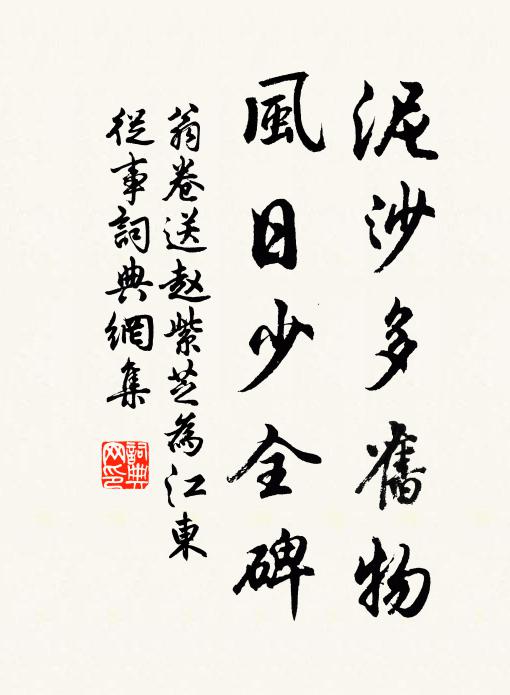 泥沙多舊物
風日少全碑
翁卷送赵紫芝為江東
從事詞典網集
詞典網印